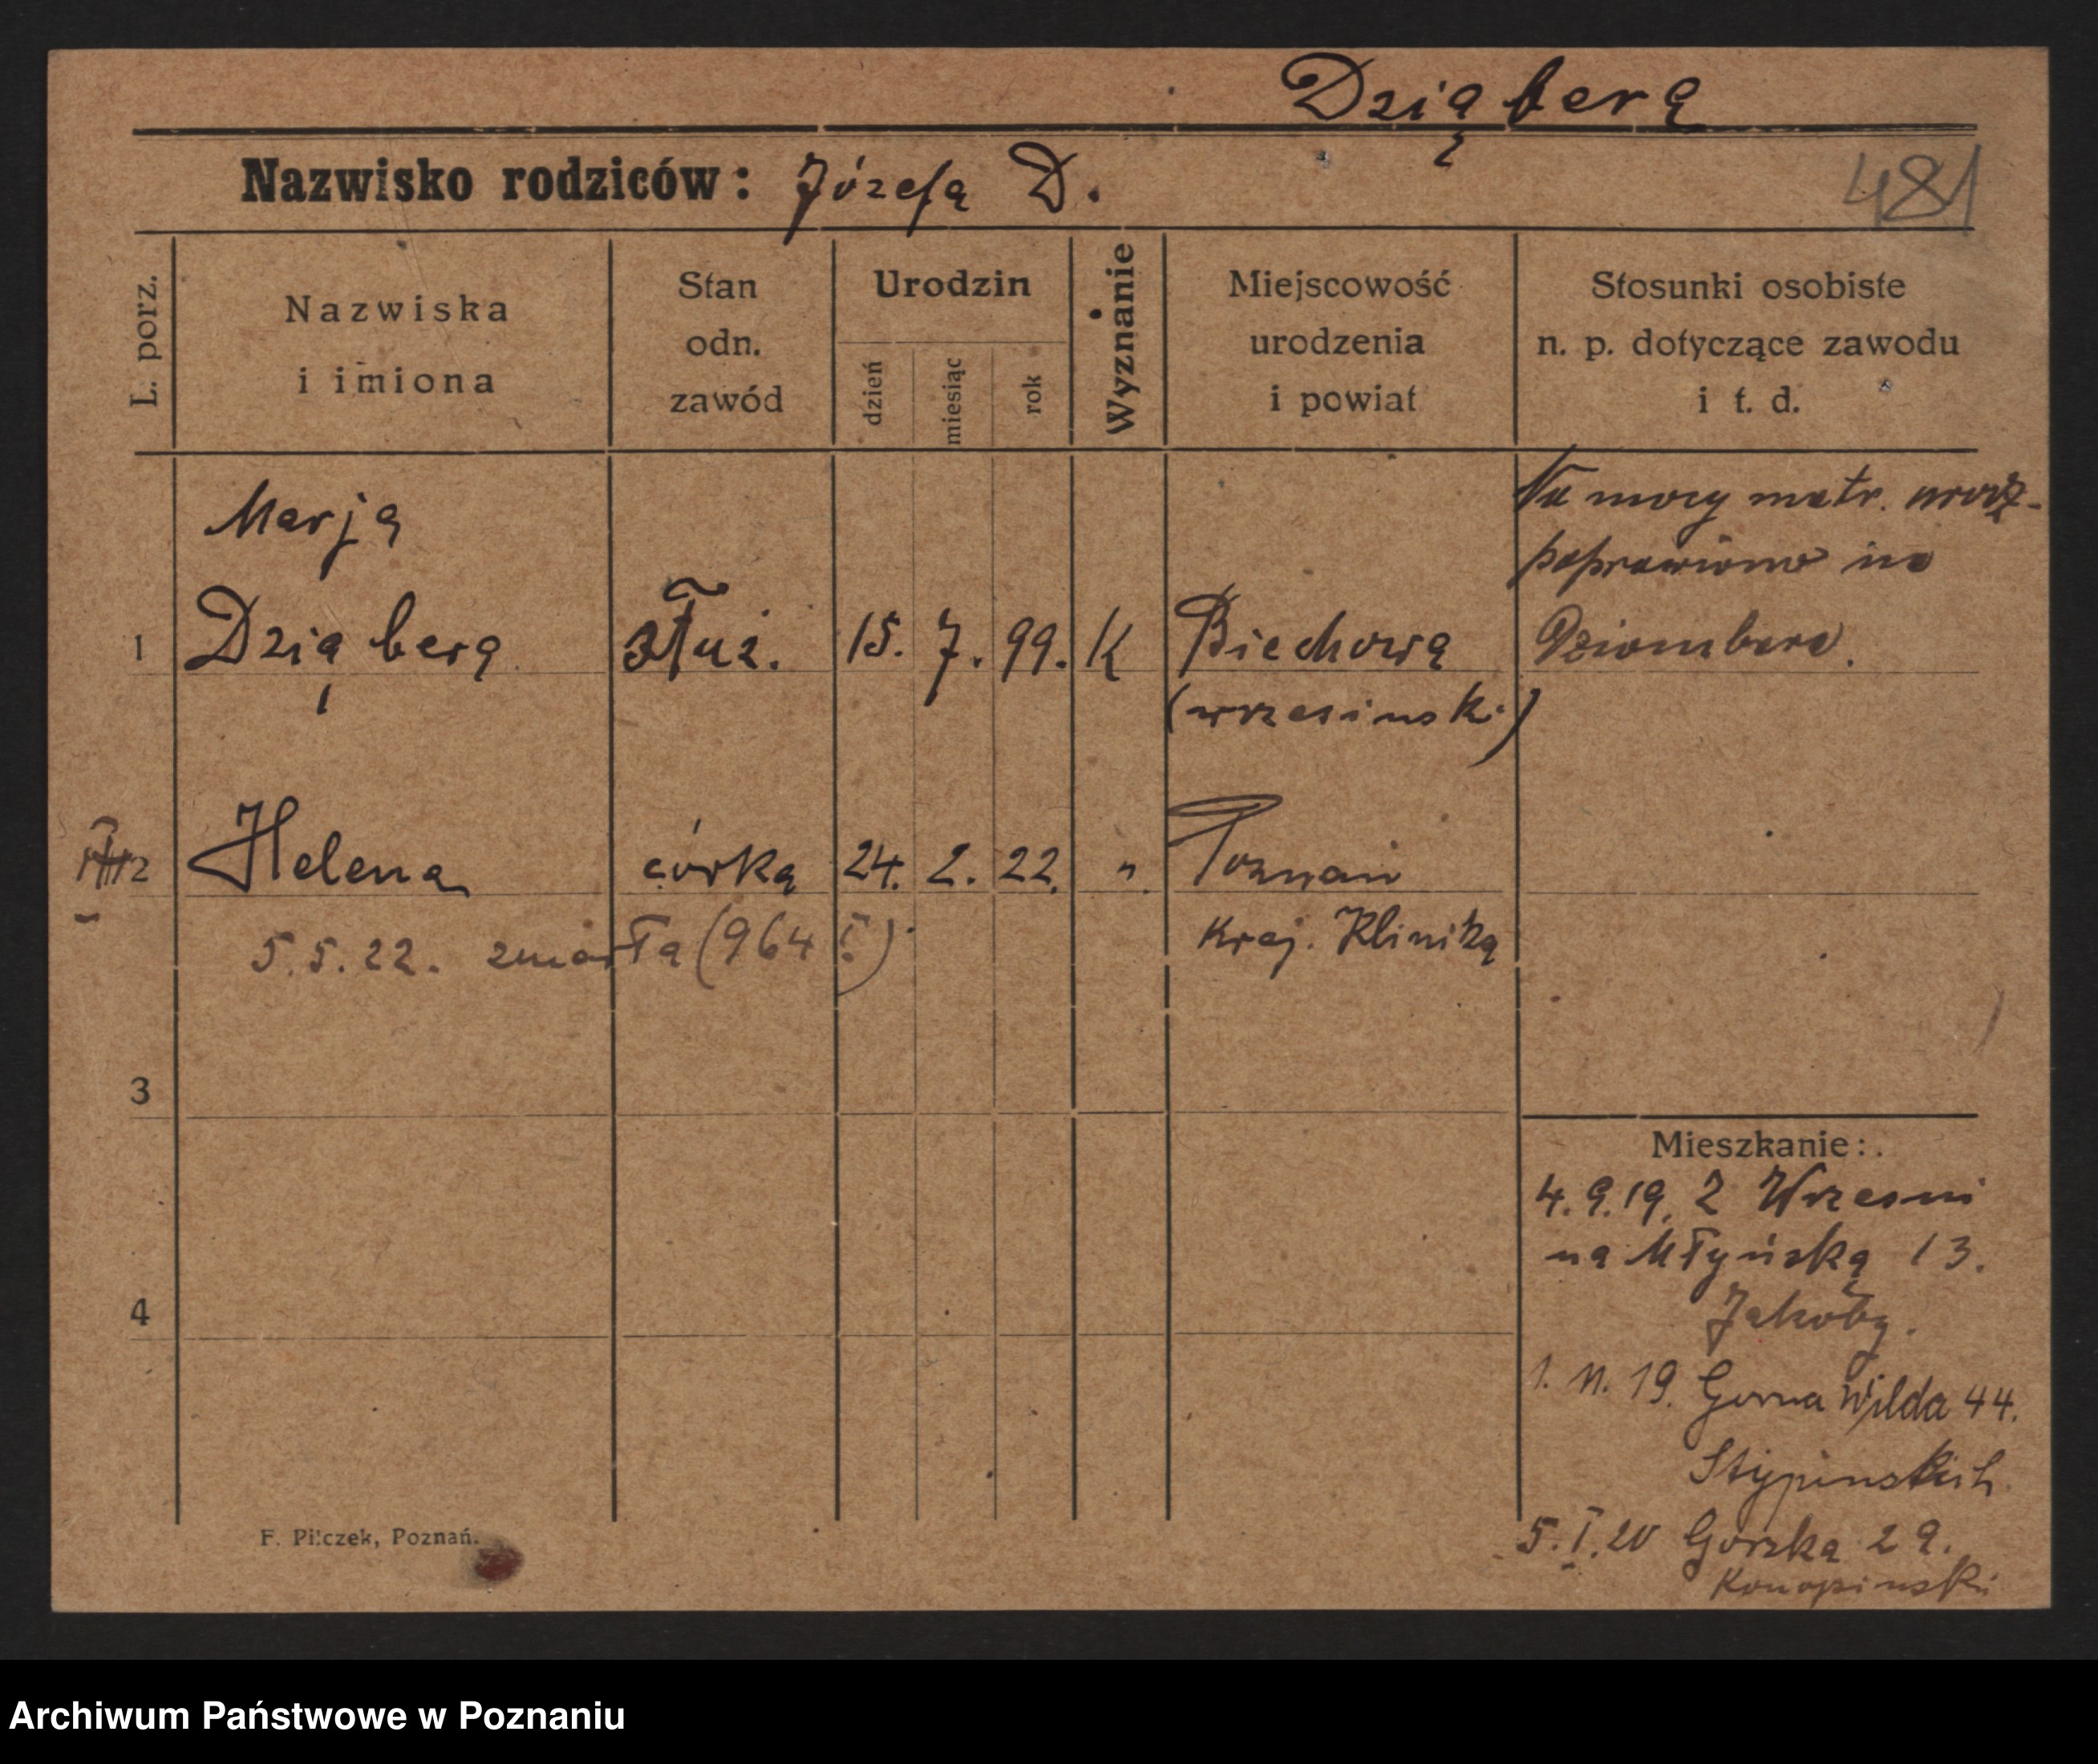 Dziąbera
Nazwisko rodziców: Józefa D.
481
L. porz.
Nazwiska
i imiona
Stan
odn.
zawód
Urodzin
dzień
miesiąc
rok
Wyznanie
Miejscowość
urodzenia
i powiat
Stosunki osobiste
n. p. dotyczące zawodu
i t. d.
Na mocy metr. urodz.
poprawiono na
Dziombera.
Marja
1 Dziąbera służ. 15. 7. 99. K Biechowa
(wrzesinski)
2 Helena córka 24. 2. 22. " Poznań
5.5.22. zmarła (964 I) Kraj. Klinika
3
4
Mieszkanie:
4.9.19. Z Wrzesni
na Młyńska 13.
Jakoby.
1. 11. 19. Gorna Wilda 44.
Stypinskich
5. I. 20 Gorska 29.
Konopinski
F. Pilczek, Poznań.
Archiwum Państwowe w Poznaniu